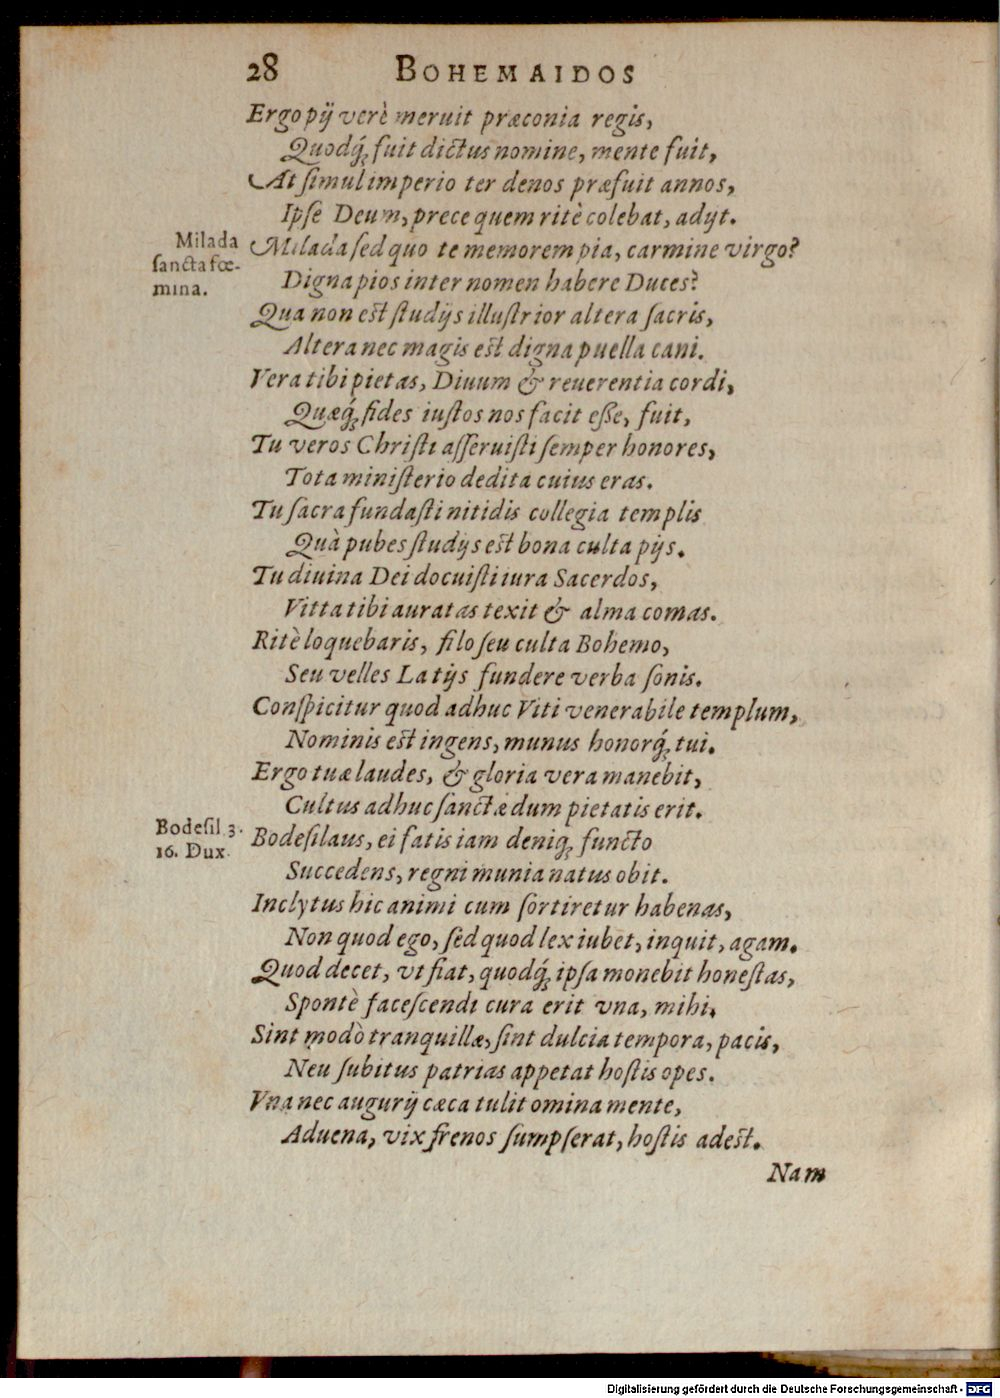 28 BOHEMAIDOS
Ergo pij verè meruit præconia regis,
Quodq́; fuit dictus nomine, mente fuit,
At ſimul imperio ter denos præfuit annos,
Ipſe Deum, prece quem ritè colebat, adijt.
Milada ſancta fœ-
mina.
Milada ſed quo te memorem pia, carmine virgo?
Digna pios inter nomen habere Duces?
Qua non est ſtudijs illuſtrior altera ſacris,
Altera nec magis est digna puella cani.
Vera tibi pietas, Diuum & reuerentia cordi,
Quæq́; fides iuſtos nos facit eſſe, fuit,
Tu veros Chriſti aſſeruiſti ſemper honores,
Tota miniſterio dedita cuius eras.
Tu ſacra fundaſti nitidis collegia templis
Quà pubes ſtudijs est bona culta pijs.
Tu diuina Dei docuiſti iura Sacerdos,
Vitta tibi auratas texit & alma comas.
Ritè loquebaris, filo ſeu culta Bohemo,
Seu velles Latijs fundere verba ſonis.
Conſpicitur quod adhuc Viti venerabile templum,
Nominis est ingens, munus honorq́; tui.
Ergo tuæ laudes, & gloria vera manebit,
Cultus adhuc ſanctæ dum pietatis erit.
Bodeſil 3.
16. Dux.
Bodeſilaus, ei fatis iam deniq; functo
Succedens, regni munia natus obit.
Inclytus hic animi cum ſortiretur habenas,
Non quod ego, ſed quod lex iubet, inquit, agam.
Quod decet, vt fiat, quodq́; ipſa monebit honeſtas,
Spontè faceſcendi cura erit vna, mihi,
Sint modò tranquillæ, ſint dulcia tempora, pacis,
Neu ſubitus patrias appetat hoſtis opes.
Vna nec augurij cæca tulit omina mente,
Aduena, vix frenos ſumpſerat, hoſtis adest.
Nam
Digitalisierung gefördert durch die Deutsche Forschungsgemeinschaft - DFG